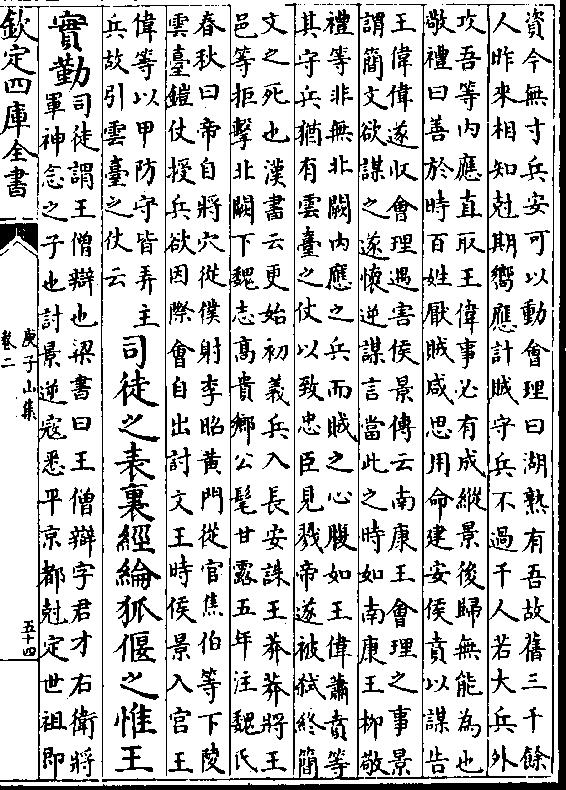 資今無寸兵安可以動會理曰湖熟有吾故舊三千餘
人昨來相知尅期嚮應計賊守兵不過千人若大兵外
攻吾等内應直取王偉事必有成縱景後歸無能為也
敬禮曰善於時百姓厭賊咸思用命建安侯賁以謀告
王偉偉遂収會理遇害侯景傳云南康王會理之事景
謂簡文欲謀之遂懷逆謀言當此之時如南康王柳敬
禮等非無北闕内應之兵而賊之心腹如王偉蕭賁等
其守兵猶有雲臺之仗以致忠臣見戮帝遂被弑終簡
文之死也漢書云更始初義兵入長安誅王莽莽將王
邑等拒擊北闕下魏志髙貴鄉公髦甘露五年注魏氏
春秋曰帝自將穴從僕射李昭黄門從官焦伯等下陵
雲臺鎧仗授兵欲因際會自出討文王時侯景入宫王
偉等以甲防守皆弄主
兵故引雲臺之仗云
司徒之表裏經綸狐偃之惟王
實勤
司徒謂王僧辯也梁書曰王僧辯字君才右衛將
軍神念之子也討景逆寇悉平京都尅定世祖即
欽定四庫全書
庾子山集
卷二
五十四